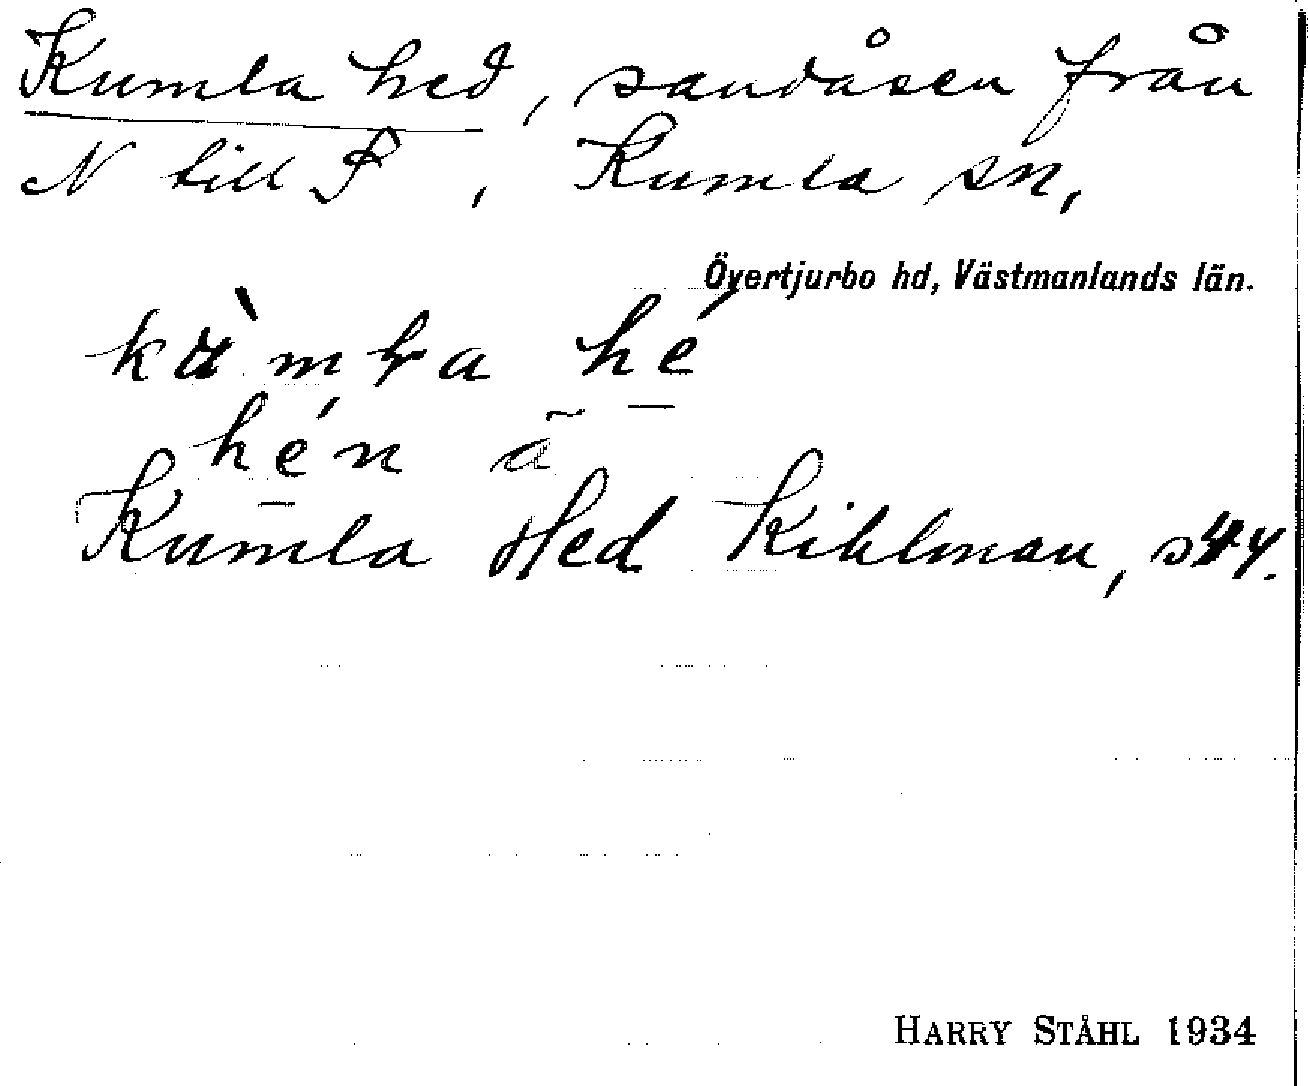 Kumla hed, sandåsen från
N till S, Kumla sn,
Övertjurbo hd, Västmanlands län.
kùmɽa hé
hén ã
Kumla Hed Kihlman,
HARRY STÅHL 1934